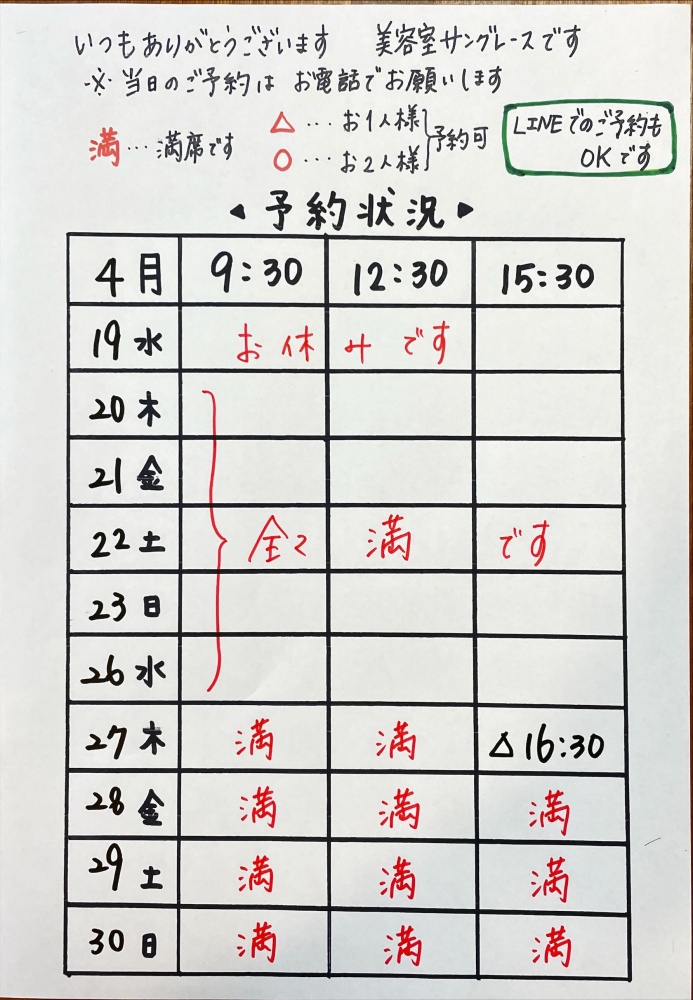 いつもありがとうございます 美容室サングレースです
※当日のご予約は お電話でお願いします
満…満席です
△…お1人様
○…お2人様
予約可
LINEでのご予約も
OKです
◀予約状況▶
4月 9:30 12:30 15:30
19水 お休みです
20木
21金
22土 全て満です
23日
26水
27木 満 満 △16:30
28金 満 満 満
29土 満 満 満
30日 満 満 満